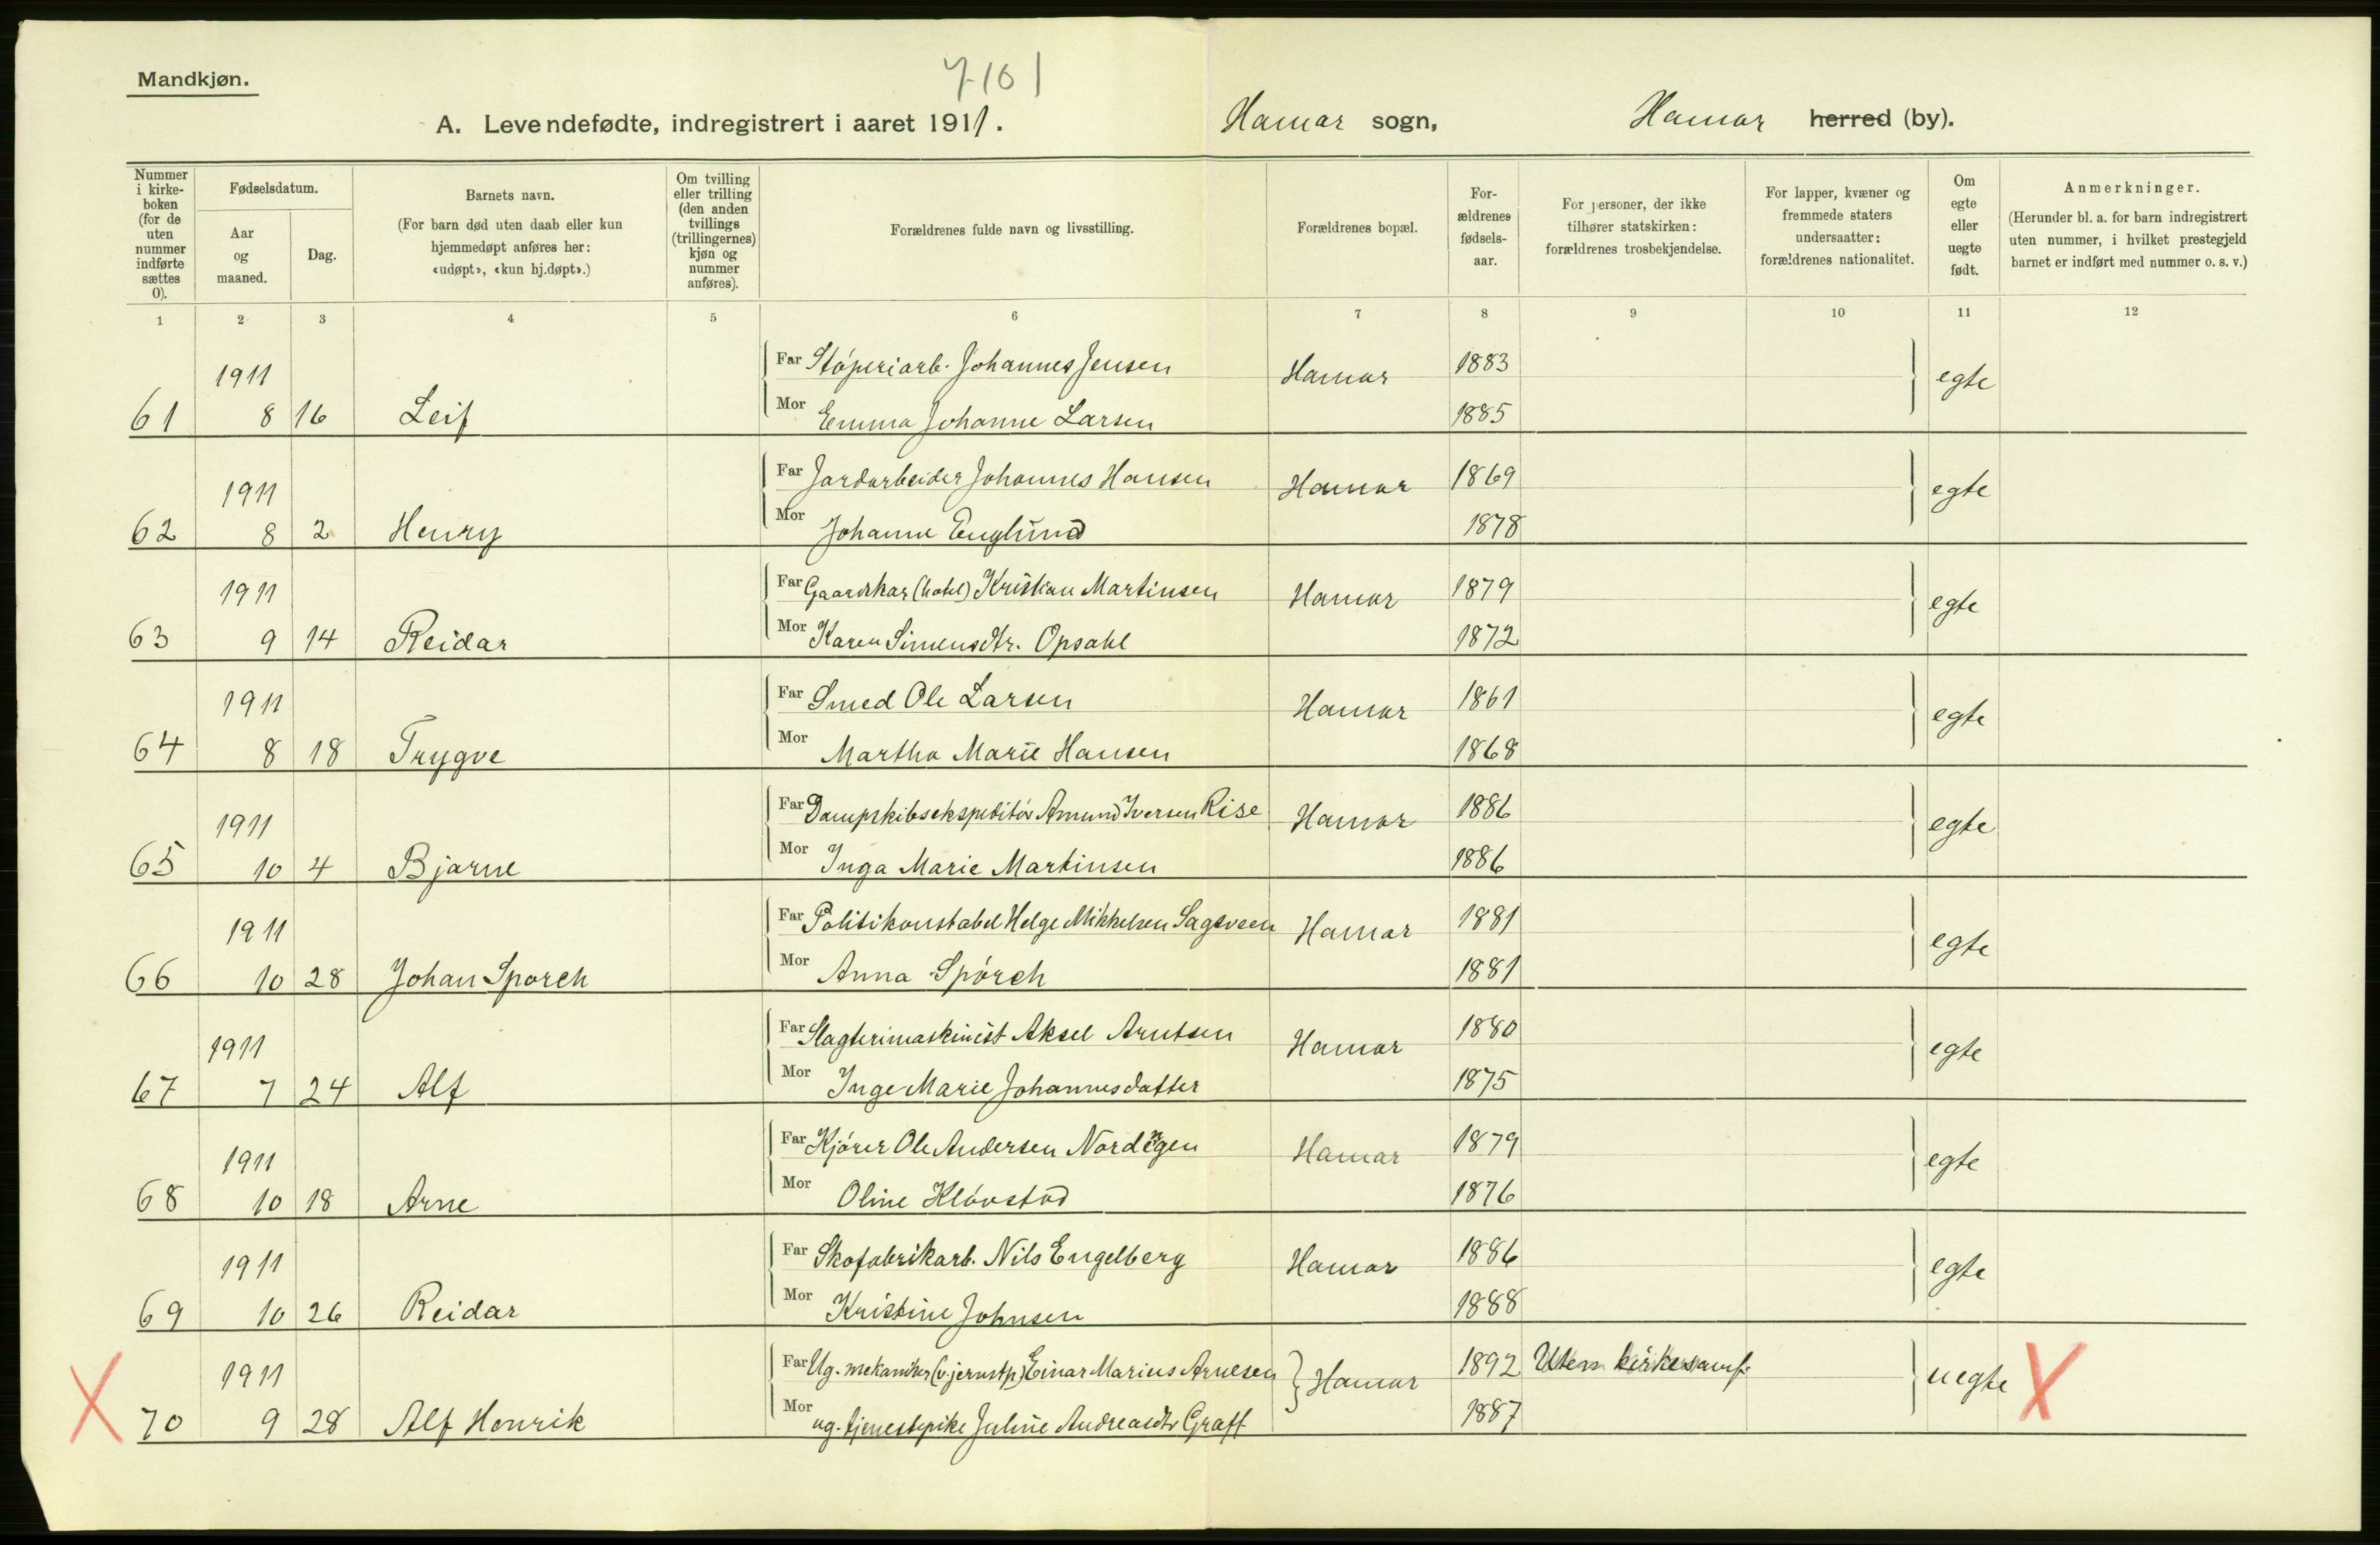 Mandkjøn.
7101
A. Levendefødte, indregistrert i aaret 1911. Hamar sogn, Hamar herred (by).
Nummer i kirkeboken (for de uten nummer indførte sættes 0).
Fødselsdatum.
Aar og maaned.
Dag.
Barnets navn.
(For barn død uten daab eller kun hjemmedøpt anføres her: «udøpt», «kun hj.døpt».)
Om tvilling eller trilling (den anden tvillings (trillingernes) kjøn og nummer anføres).
Forældrenes fulde navn og livsstilling.
Forældrenes bopæl.
Forældrenes fødselsaar.
For personer, der ikke tilhører statskirken: forældrenes trosbekjendelse.
For lapper, kvæner og fremmede staters undersaatter: forældrenes nationalitet.
Om egte eller uegte født.
Anmerkninger.
(Herunder bl. a. for barn indregistrert uten nummer, i hvilket prestegjeld barnet er indført med nummer o. s. v.)
1 2 3 4 5 6 7 8 9 10 11 12
1911 Far Støperiarb. Johannes Jensen Hamar 1883 egte
61 8 16 Leif Mor Emma Johanne Larsen 1885
1911 Far Jordarbeider Johannes Hansen Hamar 1869 egte
62 8 2 Henry Mor Johanne Englund 1878
1911 Far Gaardskar (hotel) Kristian Martinsen Hamar 1879 egte
63 9 14 Reidar Mor Karen Simensdtr. Opsahl 1872
1911 Far Smed Ole Larsen Hamar 1861 egte
64 8 18 Trygve Mor Martha Marie Hansen 1868
1911 Far Dampskibsekspeditør Amund Iversen Rise Hamar 1886 egte
65 10 4 Bjarne Mor Inga Marie Martinsen 1886
1911 Far Politikonstabel Helge Mikkelsen Sagsveen Hamar 1881 egte
66 10 28 Johan Sporch Mor Anna Spørch 1881
1911 Far Slagterimaskinist Aksel Arntsen Hamar 1880 egte
67 7 24 Alf Mor Inge Marie Johannesdatter 1875
1911 Far Kjører Ole Andersen Hamar 1879 egte
68 10 18 Arne Mor Oline Kløvstad 1876
1911 Far Skofabrikarb. Nils Engelberg Hamar 1886 egte
69 10 26 Reidar Mor Kristine Johnsen 1888
1911 Far Ug. mekaniker (v. jernstp) Einar Marius Arnesen Hamar 1892 Uten kirkesamf. uegte X
X 70 9 28 Alf Henrik Mor ug. tjenestepike Juline Andreasdtr Graff 1887